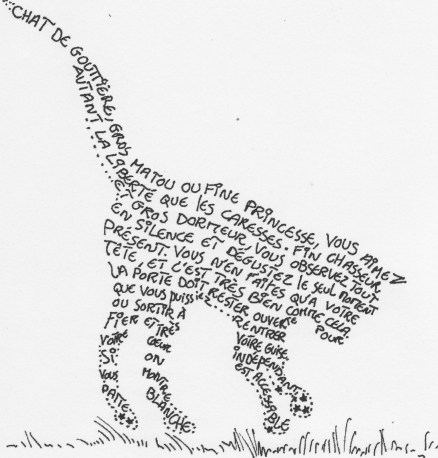 CHAT DE GOUTTIÈRE, GROS MATOU OU FINE PRINCESSE, VOUS AIMEZ
AUTANT LA LIBERTÉ QUE LES CARESSES. FIN CHASSEUR
ET GROS DORMEUR, VOUS OBSERVEZ TOUT
EN SILENCE ET DÉGUSTEZ LE SEUL MOMENT
PRÉSENT. VOUS N'EN FAITES QU'À VOTRE
TÊTE, ET C'EST TRÈS BIEN COMME CELA
LA PORTE DOIT RESTER OUVERTE POUR
QUE VOUS PUISSIEZ RENTRER
OU SORTIR À VOTRE GUISE.
FIER ET TRÈS INDÉPENDANT,
VOTRE CŒUR EST ACCESSIBLE
SI ON
VOUS MONTRE
PATTE BLANCHE